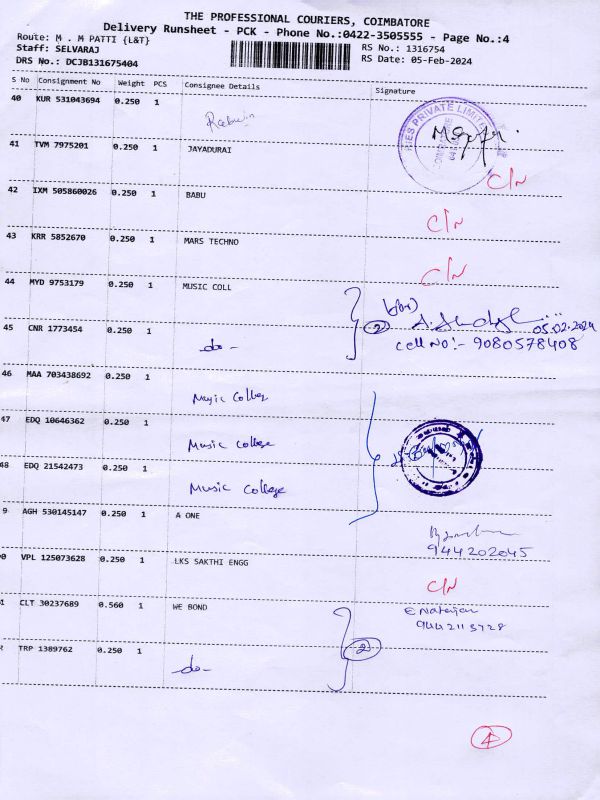 THE PROFESSIONAL COURIERS, COIMBATORE
Delivery Runsheet - PCK - Phone No.:0422-3505555 - Page No.:4
Route: M . M PATTI {L&T}
RS No.: 1316754
Staff: SELVARAJ
RS Date: 05-Feb-2024
DRS No.: DCJB131675404
S No Consignment No Weight PCS Consignee Details Signature
40 KUR 531043694 0.250 1
IES PRIVATE LIMIT
41 TVM 7975201 0.250 1 JAYADURAI
C/N
42 IXM 505860026 0.250 1 BABU
C/N
43 KRR 5852670 0.250 1 MARS TECHNO
C/N
44 MYD 9753179 0.250 1 MUSIC COLL
2 05.02.2024
45 CNR 1773454 0.250 1 -do-
cell NO:- 9080578408
46 MAA 703438692 0.250 1 Music College
47 EDQ 10646362 0.250 1 Music College
48 EDQ 21542473 0.250 1 Music College
9 AGH 530145147 0.250 1 A ONE
944202045
0 VPL 125073628 0.250 1 LKS SAKTHI ENGG
C/N
1 CLT 30237689 0.560 1 WE BOND
E Natarajan
9442113728
TRP 1389762 0.250 1 -do-
2
4